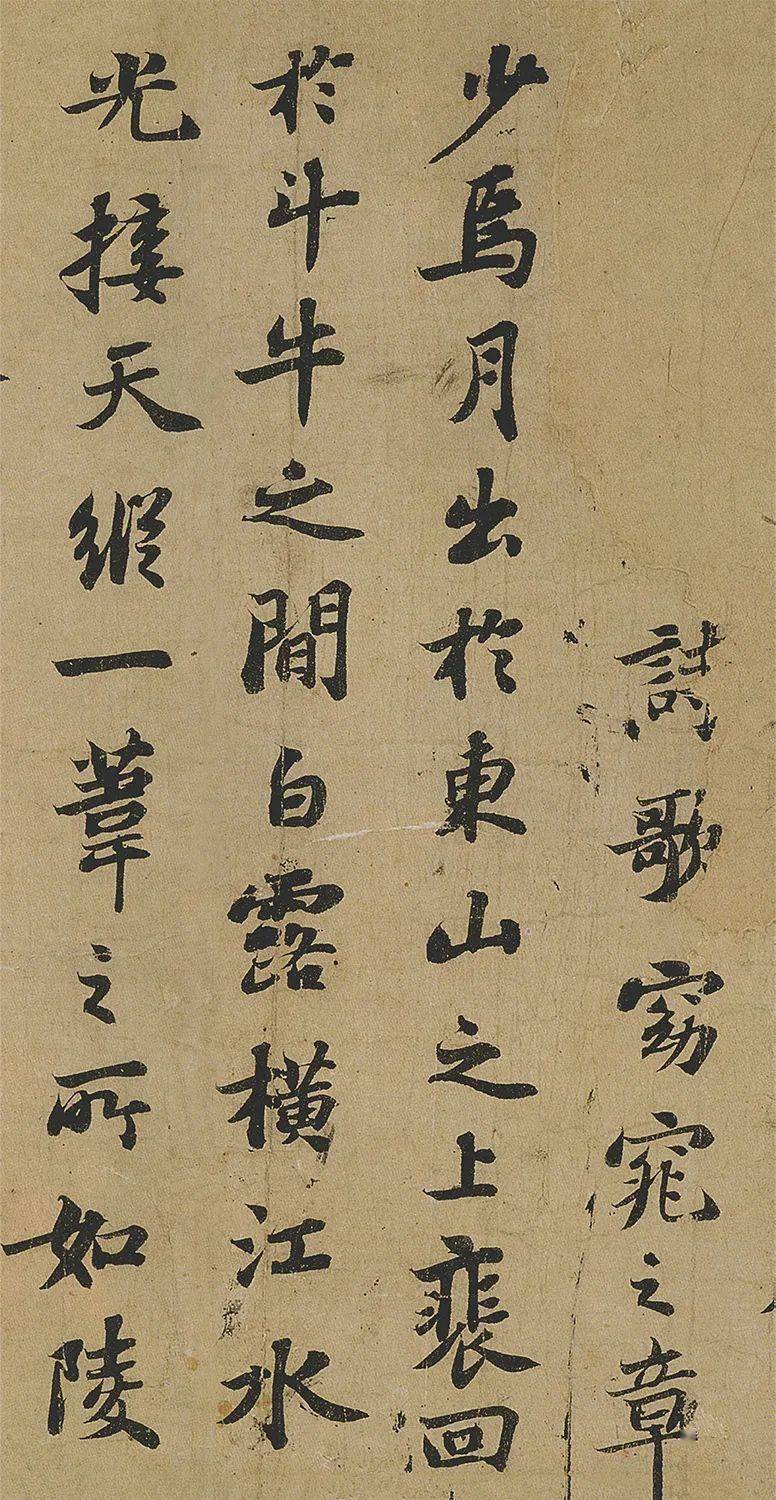 詩歌窈窕之章
少焉月出於東山之上裴回
於斗牛之間白露橫江水
光接天縱一葦之所如陵